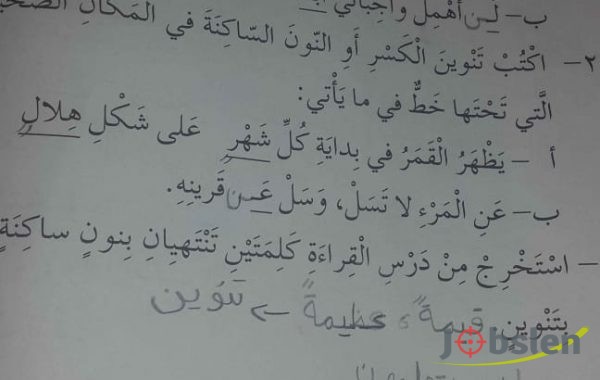 ب- لَن أُهْمِلَ وَاجِبَاتِي
٢- اكْتُبْ تَنْوِينَ الْكَسْرِ أَوِ النّونَ السّاكِنَةَ في الْمَكَانِ
الَّتي تَحْتَها خَطٌّ في ما يَأْتي:
أ - يَظْهَرُ الْقَمَرُ في بِدايَةِ كُلِّ شَهْرٍ عَلى شَكْلِ هِلالٍ
ب- عَنِ الْمَرْءِ لا تَسَلْ، وَسَلْ عَن قَرينِهِ.
- اسْتَخْرِجْ مِنْ دَرْسِ الْقِراءَةِ كَلِمَتَيْنِ تَنْتَهِيانِ بِنونٍ ساكِنَةٍ
بِتَنْوينٍ قيمةً، عظيمةً -> تنوين
Jobslen